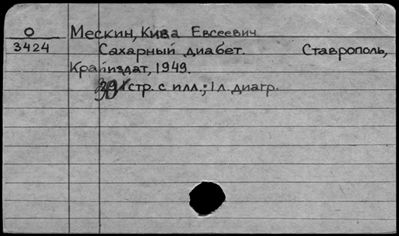 О
3424
Мескин, Кива Евсеевич
Сахарный диабет. Ставрополь,
Крайиздат, 1949.
стр. с илл.; 1 л. диагр.